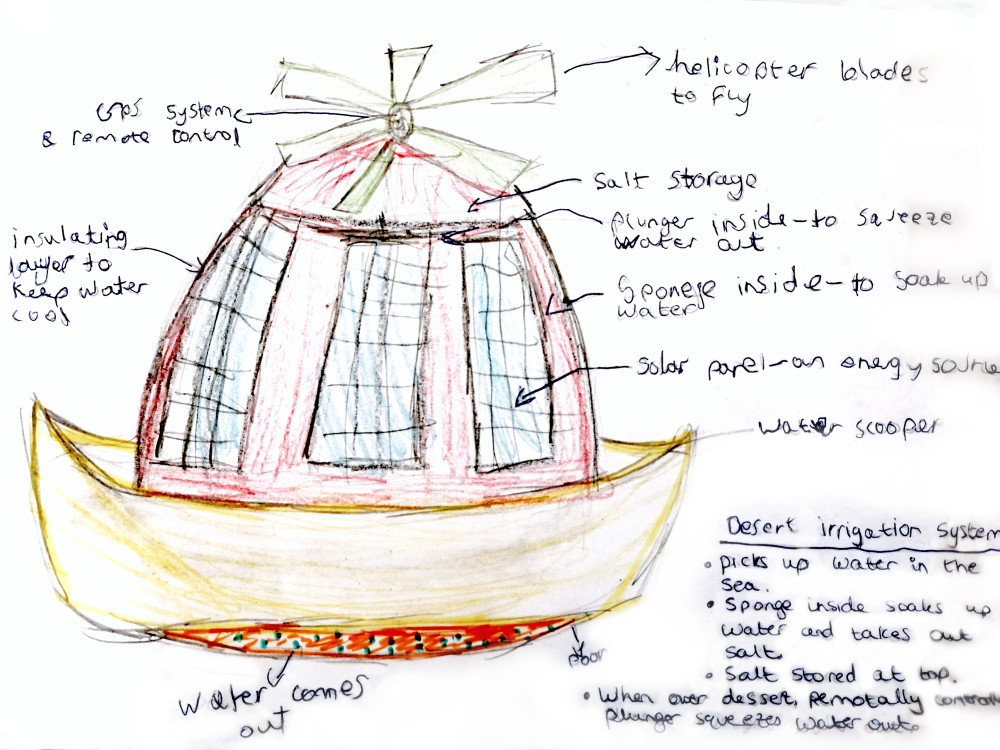 helicopter blades
to fly
GPS system
& remote control
Salt storage
plunger inside - to squeeze
water out.
insulating
layer to
keep water
cool
Sponge inside - to soak up
water
Solar panel - an energy source
water scooper
Desert irrigation system
• picks up water in the
sea.
• Sponge inside soaks up
water and takes out
salt.
• Salt stored at top.
• When over dessert, remotally
plunger squeezes water out.
door
Water comes
out